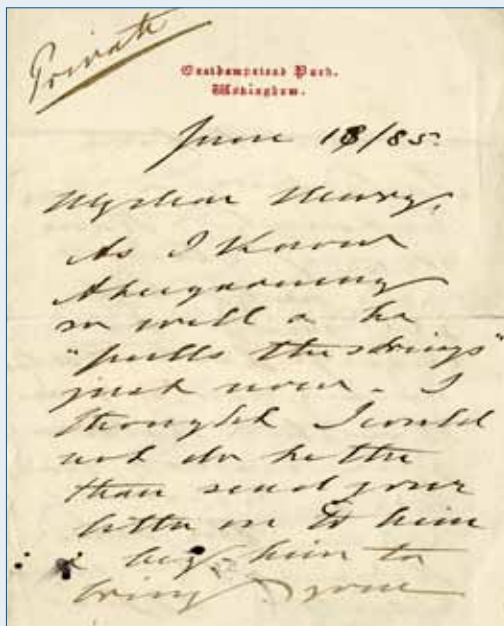 Private
Easthampstead Park.
Wokingham.
June 18/85.
My dear Henry,
As I know
Abergavenny
so well & he
"pulls the strings"
just now - I
thought I could
not do better
than send your
letter on to him
& beg him to
bring your